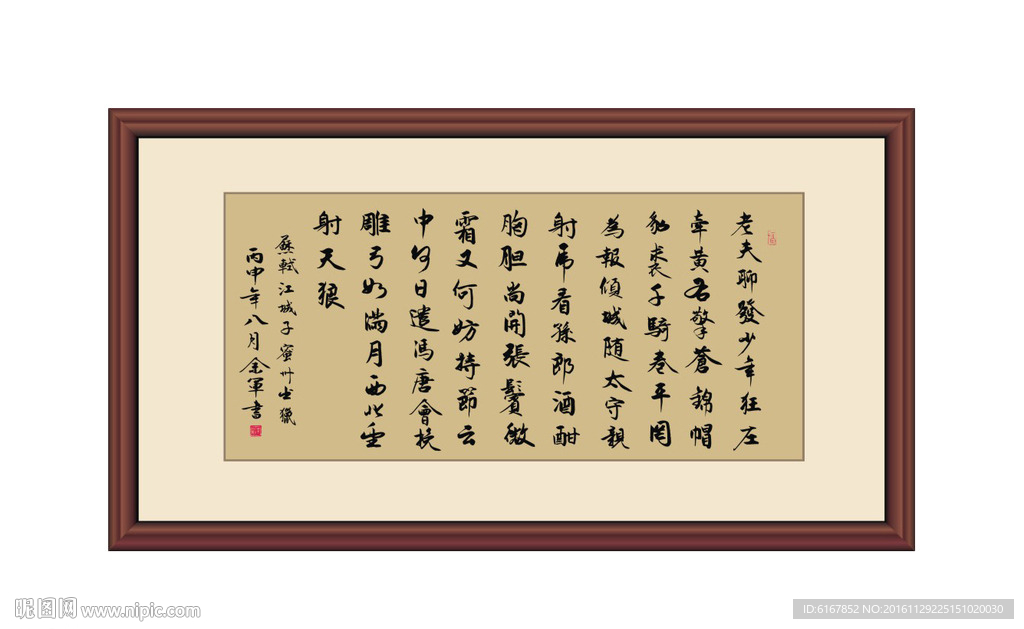 老夫聊發少年狂左
牽黄右擎蒼錦帽
貂裘千騎卷平岡
為報傾城随太守親
射虎看孫郎酒酣
胸胆尚開張鬢微
霜又何妨持節云
中何日遣馮唐會挽
雕弓如满月西北望
射天狼
蘇軾江城子蜜州出獵
丙申年八月金軍書
昵图网 www.nipic.com
ID:6167852 NO:20161129225151020030